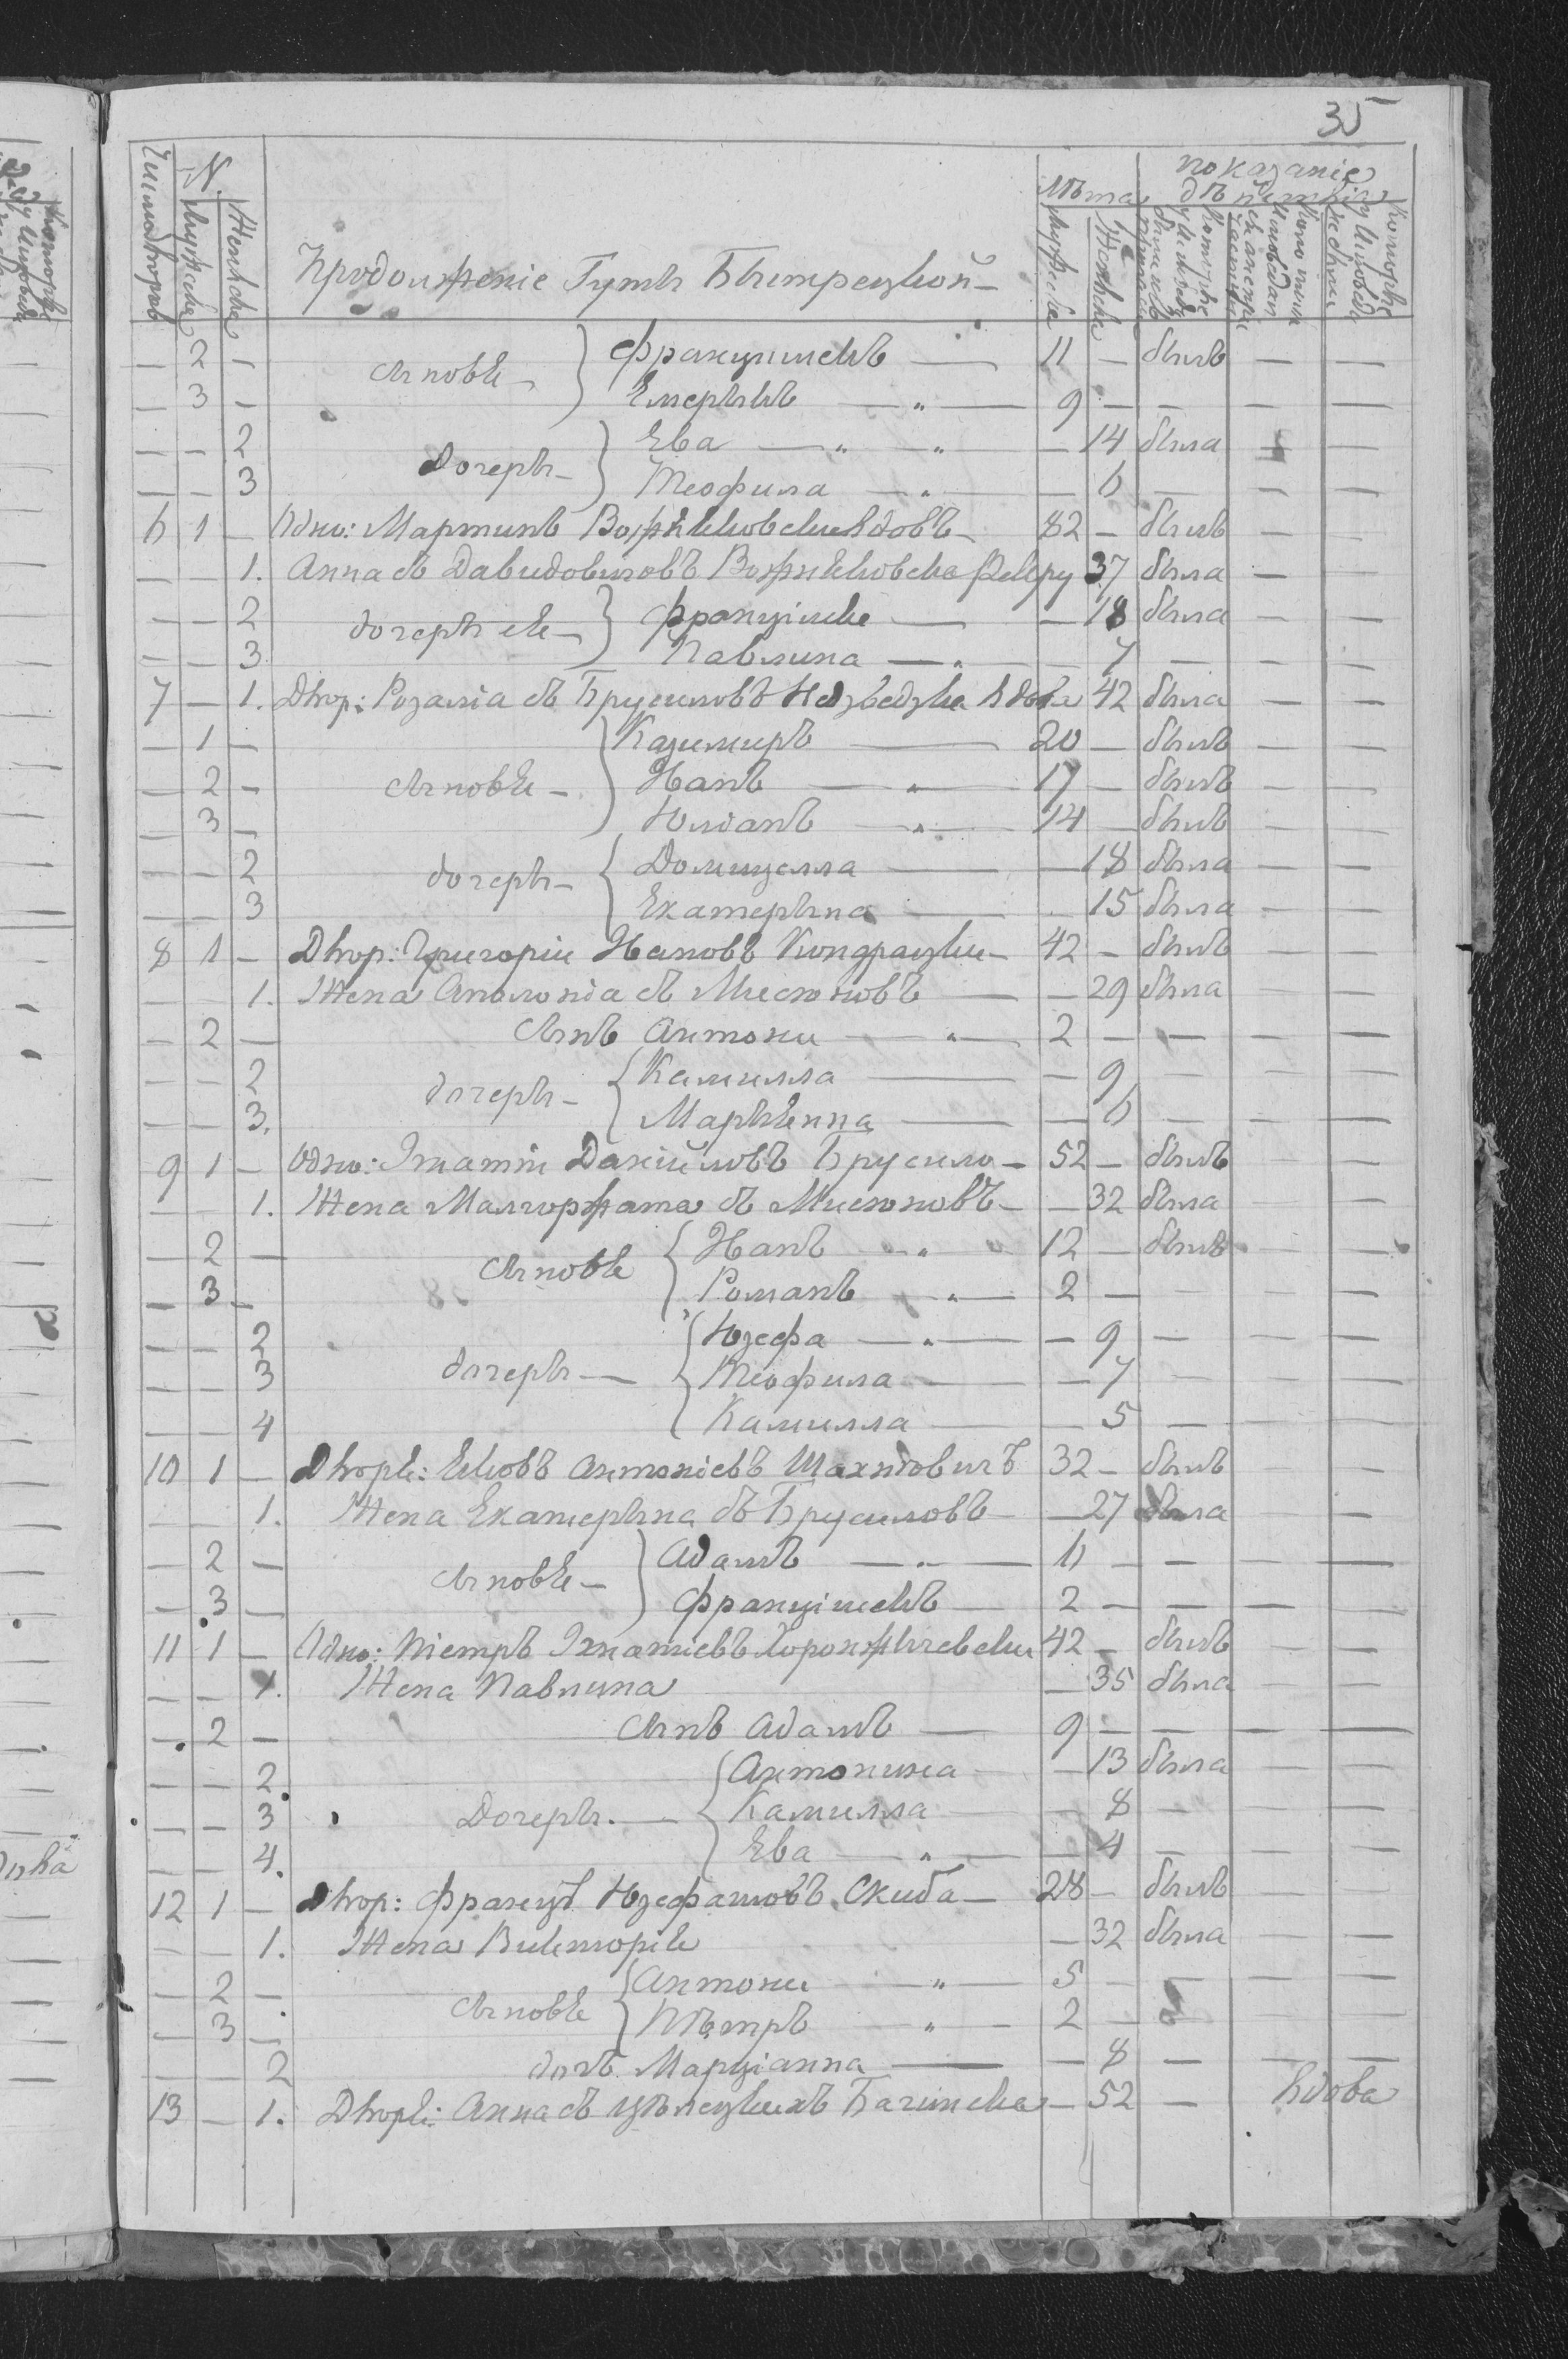 35
Число дворовъ
N.
Мужеска
Женска
Продолженіе Гуты Быстрецкой
Лѣта
Мужеска
Женска
показаніе
2 — сынове Францишекъ — 11 — былъ — —
3 — Емерыкъ — " — 9 — — — —
— — 2 дочеры Ева — " — " — 14 была — —
— — 3 Теофила — " — 6 — — —
6 1 — Одно: Мартинъ вдовъ — 82 — былъ — —
— — 1. Анна съ Давидовичовъ 37 была — —
— — 2 дочеры ее Францішка — 18 была — —
— — 3 Павлина — " — 7 — — —
7 — 1. Двор: Розалія съ Брусиловъ Недзведзка вдова 42 была — —
— 1 — Казимиръ — 20 — былъ — —
— 2 — сынове Иванъ — " — 17 — былъ — —
— 3 — Юліанъ — " — 14 — былъ — —
— — 2 дочеры Домицелла — 18 была — —
— — 3 Екатерына — 15 была — —
8 1 — Двор: Григорій Ивановъ Кондрацки — 42 — былъ — —
— — 1. Жена Аполонія съ Мисюновъ — 29 была — —
— 2 — сынъ Антони — " — 2 — — — —
— — 2 дочеры Камилла — 9 — — —
— — 3. Марыенна — 6 — — —
9 1 — Одно: Игнатій Даніиловъ Брусило — 52 — былъ — —
— — 1. Жена Малгоржата съ Мисюновъ — 32 была — —
— 2 — сынове Иванъ — " 12 — былъ — —
— 3 — Романъ — " — 2 — — — —
— — 2 Юзефа — " — 9 — — —
— — 3 дочеры — Теофила — 7 — — —
— — 4 Камилла — 5 — — —
10 1 — Дворя: Яковъ Антоніевъ Шахновичъ 32 — былъ — —
— — 1. Жена Екатерына съ Брусиловъ — 27 была — —
— 2 — сынове Адамъ — " — 6 — — — —
— 3 — Францішекъ — 2 — — — —
11 1 — Одно: Піетръ Игнатіевъ 42 — былъ — —
— — 1. Жена Павлина — 35 была — —
— 2 — сынъ Адамъ — 9 — — — —
— — 2. Антонина — 13 была — —
— — 3 Дочеры. — Камилла — 8 — — —
— — 4. Ева — " — 4 — — —
12 1 — Двор: Францъ Юзефатовъ Скиба — 28 — былъ — —
— — 1. Жена Викторія — 32 была — —
— 2 — сынове Антони — " — 5 — — — —
— 3 — Піѣтръ — " — 2 — — —
— — 2 дочъ Марціанна — 8 — — —
13 — 1. Дворя: Анна съ Багинска — 52 — вдова